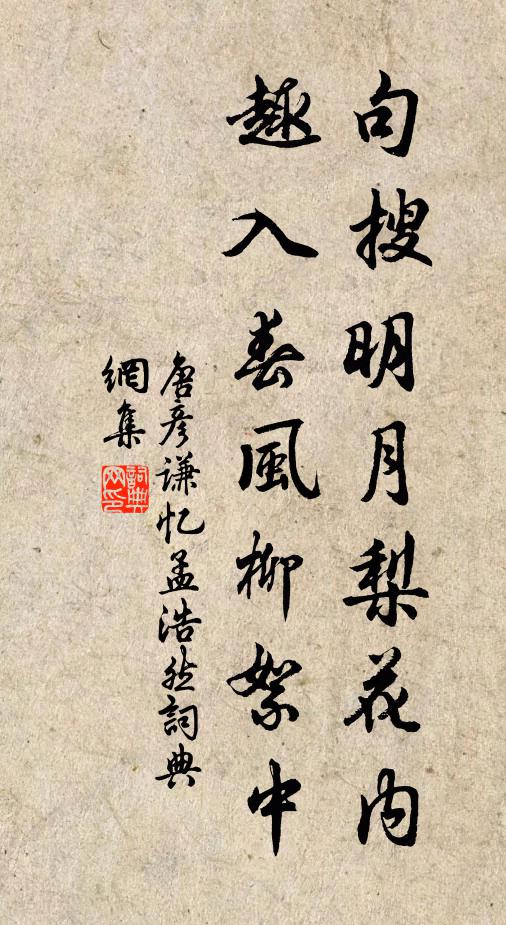 句搜明月梨花内
趣入春風柳絮中
唐彦谦忆孟浩然詞典
網集
詞典
网印